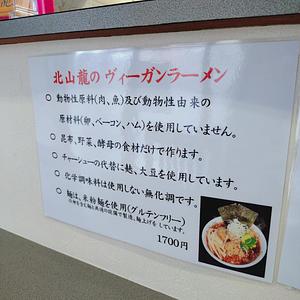 北山龍の ヴィーガンラーメン
○ 動物性原料(肉、魚)及び動物性由来の
原材料(卵、ベーコン、ハム)を使用していません。
○ 昆布、野菜、酵母の食材だけで作ります。
○ チャーシューの代替に麩、大豆を使用しています。
○ 化学調味料は使用しない無化調です。
○ 麺は、米粉麺を使用(グルテンフリー)
1700円